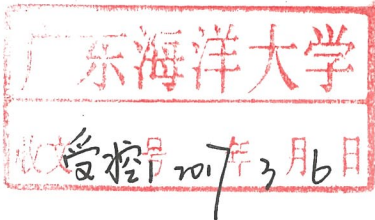 广东海洋大学
收文受控号 2017年3月6日